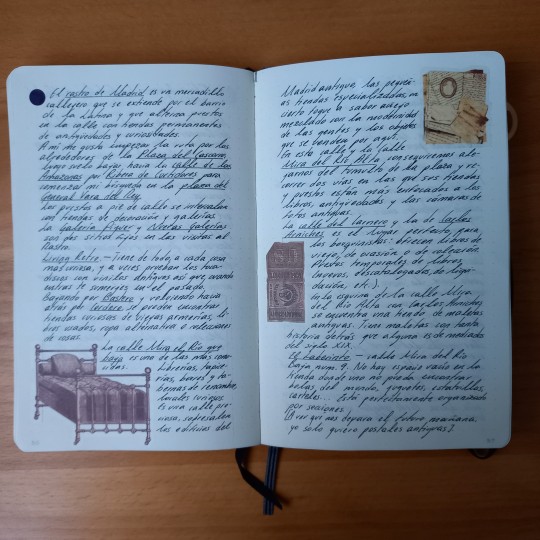 El rastro de Madrid es un mercadillo
callejero que se extiende por el barrio
de La Latina y que alterna puestos
en la calle con tiendas permanentes
de antigüedades y curiosidades.
A mi me gusta empezar la ruta por los
alrededores de la Plaza del Cascorro
luego suelo bajar hasta la calle de las
Amazonas por Ribera de Curtidores para
comenzar mi búsqueda en la plaza del
General Vara del Rey.
Los puestos a pie de calle se intercalan
con tiendas de decoración y galerías.
La Galería Piquer y Nuevas Galerías
son dos sitios fijos en las visitas al
Rastro.
Living Retro. - Tiene de todo, a cada cosa
más curiosa, y a veces prueban los
discos con vinilos antiguos así que, cuando
entras te sumerges en el pasado.
Bajando por Bastero y volviendo hacia
atrás por Cordero se pueden encontrar
tiendas curiosas de viejas armerías, li-
bros usados, ropa alternativa o relaciones
de cosas.
La calle Mira el Río que
baja es una de las más cono-
cidas. Librerías, tapi-
cerías, bares y ta-
bernas de renombre,
locales curiosos.
Es una calle pre-
ciosa, sobresalen
los edificios del
Madrid antiguo, las peque-
ñas tiendas especializadas, un
cierto toque a sabor añejo
mezclado con la modernidad
de las gentes y los objetos
que se venden por aquí.
En esta calle y la calle
Mira del Río Alta conseguiremos ale-
jarnos del tumulto de la plaza y re-
correr dos vías en las que sus tiendas
y puestos están más enfocados a los
libros, antigüedades y las cámaras de
fotos antiguas.
La calle del Carnero y la de Carlos
Arniches es el lugar perfecto para
los busquinistas: ofrecen libros de
viejo, de ocasión o de colección
(Restos temporales de libros
nuevos, descatalogados, de liqui-
dación, etc.)
En la esquina de la calle Mira
el Río Alta con Carlos Arniches
se encuentra una tienda de maletas
antiguas. Tiene maletas con tanta
historia detrás que alguna es de mediados
del siglo XIX.
El Laberinto. - calle Mira del Río
Baja núm. 9. No hay espacio vacío en la
tienda donde uno no pueda encontrar
bolas del mundo, juguetes, estatuillas,
carteles... Está perfectamente organizado
por secciones.
[A ver que nos depara el futuro mañana,
yo solo quiero postales antiguas]